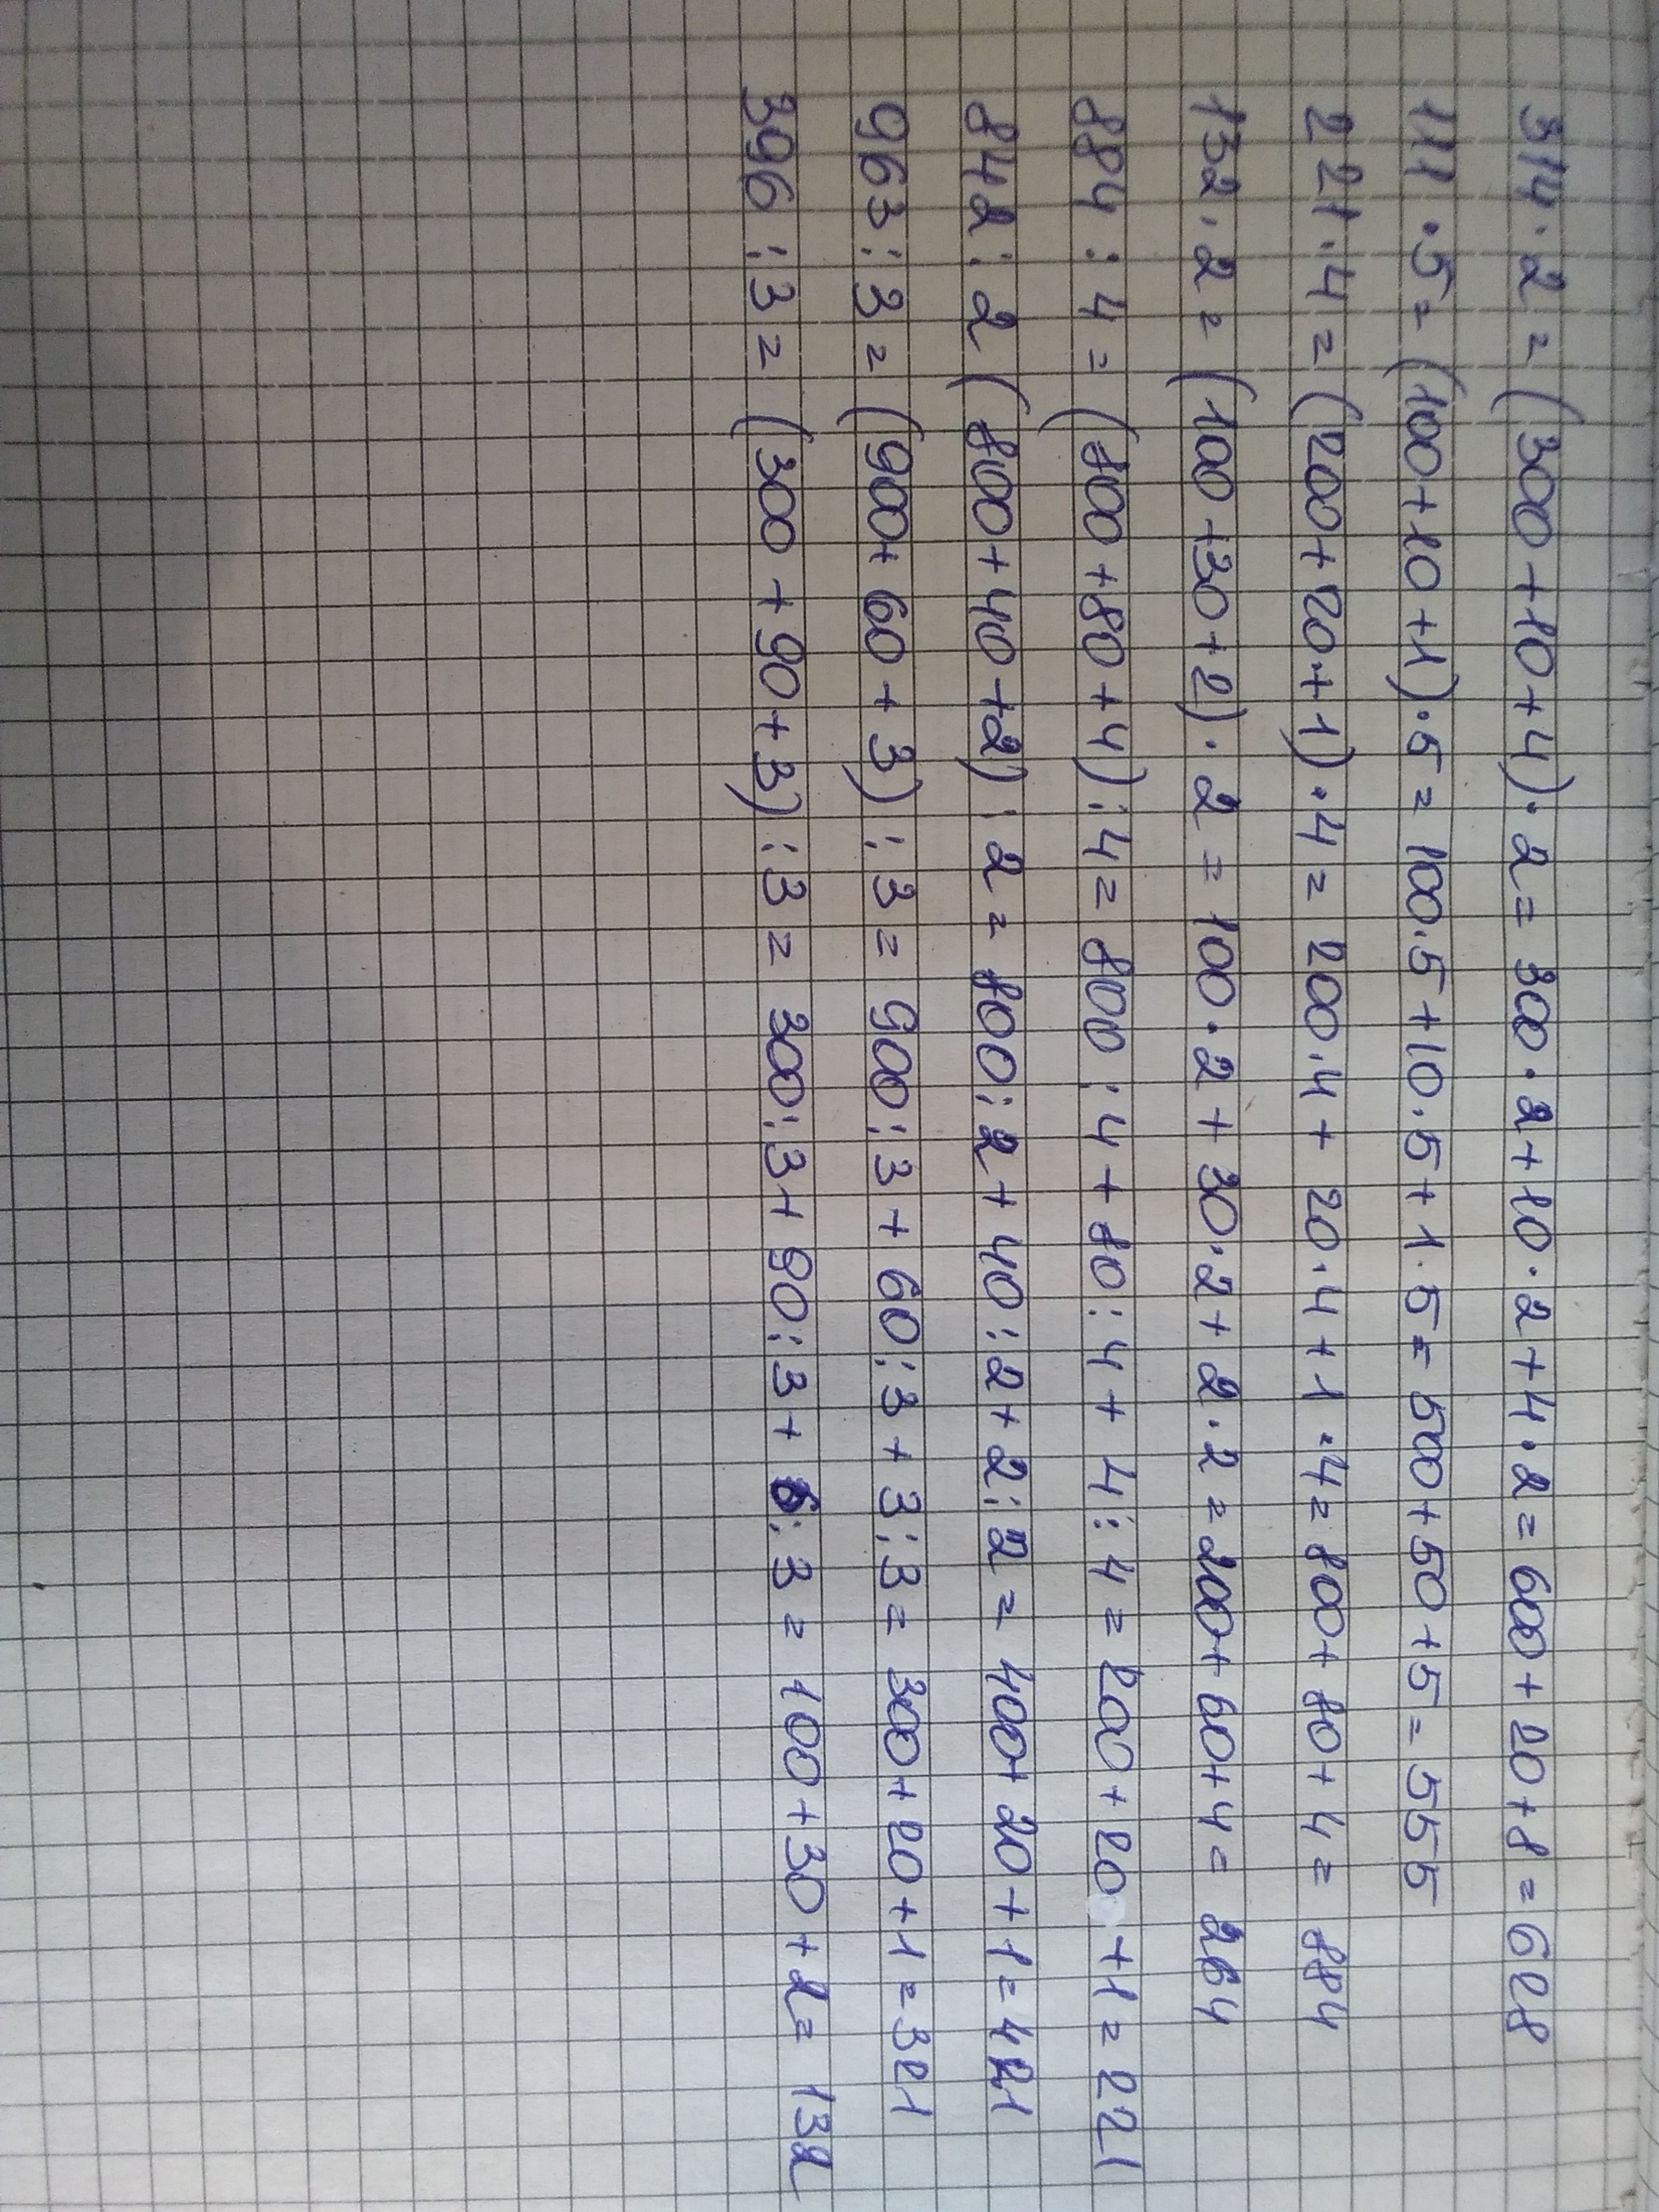 314·2=(300+10+4)·2=300·2+10·2+4·2=600+20+8=628
111·5=(100+10+1)·5=100·5+10·5+1·5=500+50+5=555
221·4=(200+20+1)·4=200·4+20·4+1·4=800+80+4=884
132·2=(100+30+2)·2=100·2+30·2+2·2=200+60+4=264
884:4=(800+80+4):4=800:4+80:4+4:4=200+20+1=221
842:2(800+40+2):2=800:2+40:2+2:2=400+20+1=421
963:3=(900+60+3):3=900:3+60:3+3:3=300+20+1=321
396:3=(300+90+3):3=300:3+90:3+6:3=100+30+2=132